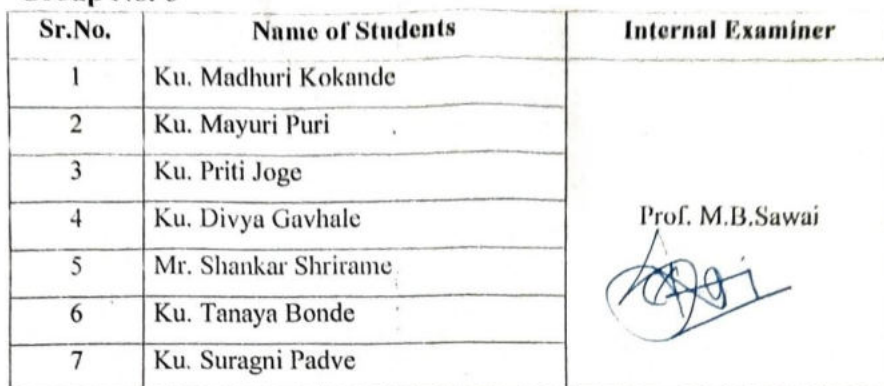 Sr.No. Name of Students Internal Examiner
1 Ku. Madhuri Kokande
2 Ku. Mayuri Puri
3 Ku. Priti Joge
4 Ku. Divya Gavhale Prof. M.B.Sawai
5 Mr. Shankar Shrirame
6 Ku. Tanaya Bonde
7 Ku. Suragni Padve